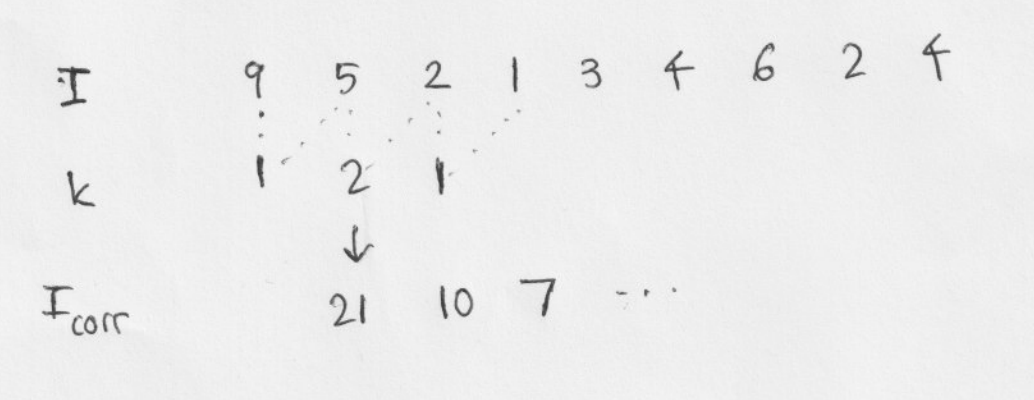 I 9 5 2 1 3 4 6 2 4
k 1 2 1
↓
I_corr 21 10 7 ...